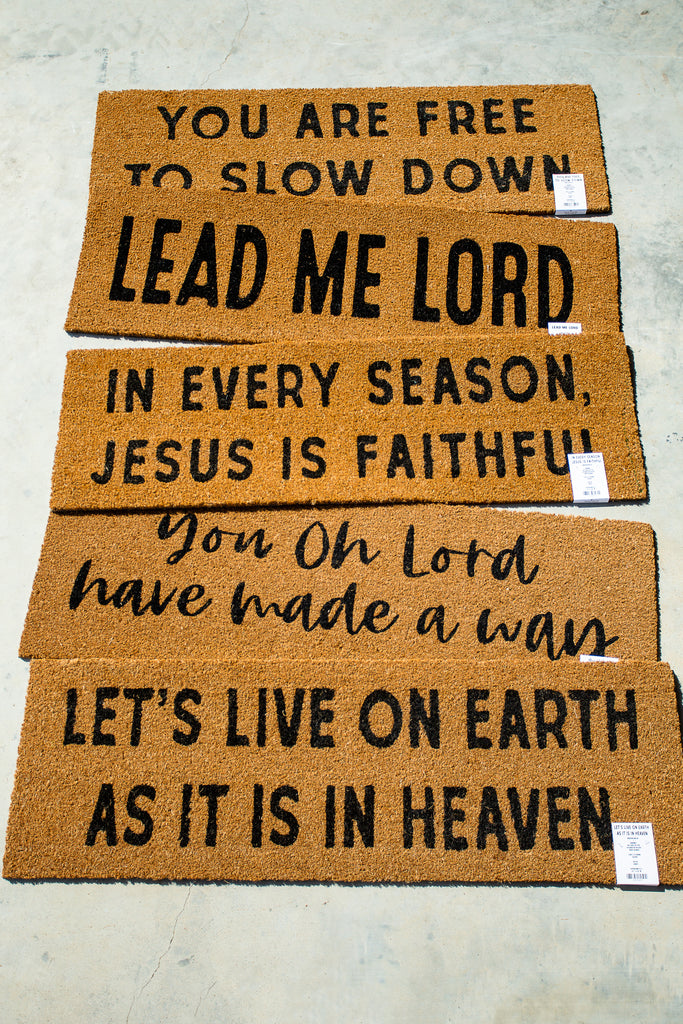 YOU ARE FREE
TO SLOW DOWN
LEAD ME LORD
LEAD ME LORD
IN EVERY SEASON,
JESUS IS FAITHFUL
IN EVERY SEASON
JESUS IS FAITHFUL
You Oh Lord
have made a way
LET'S LIVE ON EARTH
AS IT IS IN HEAVEN
LET'S LIVE ON EARTH
AS IT IS IN HEAVEN